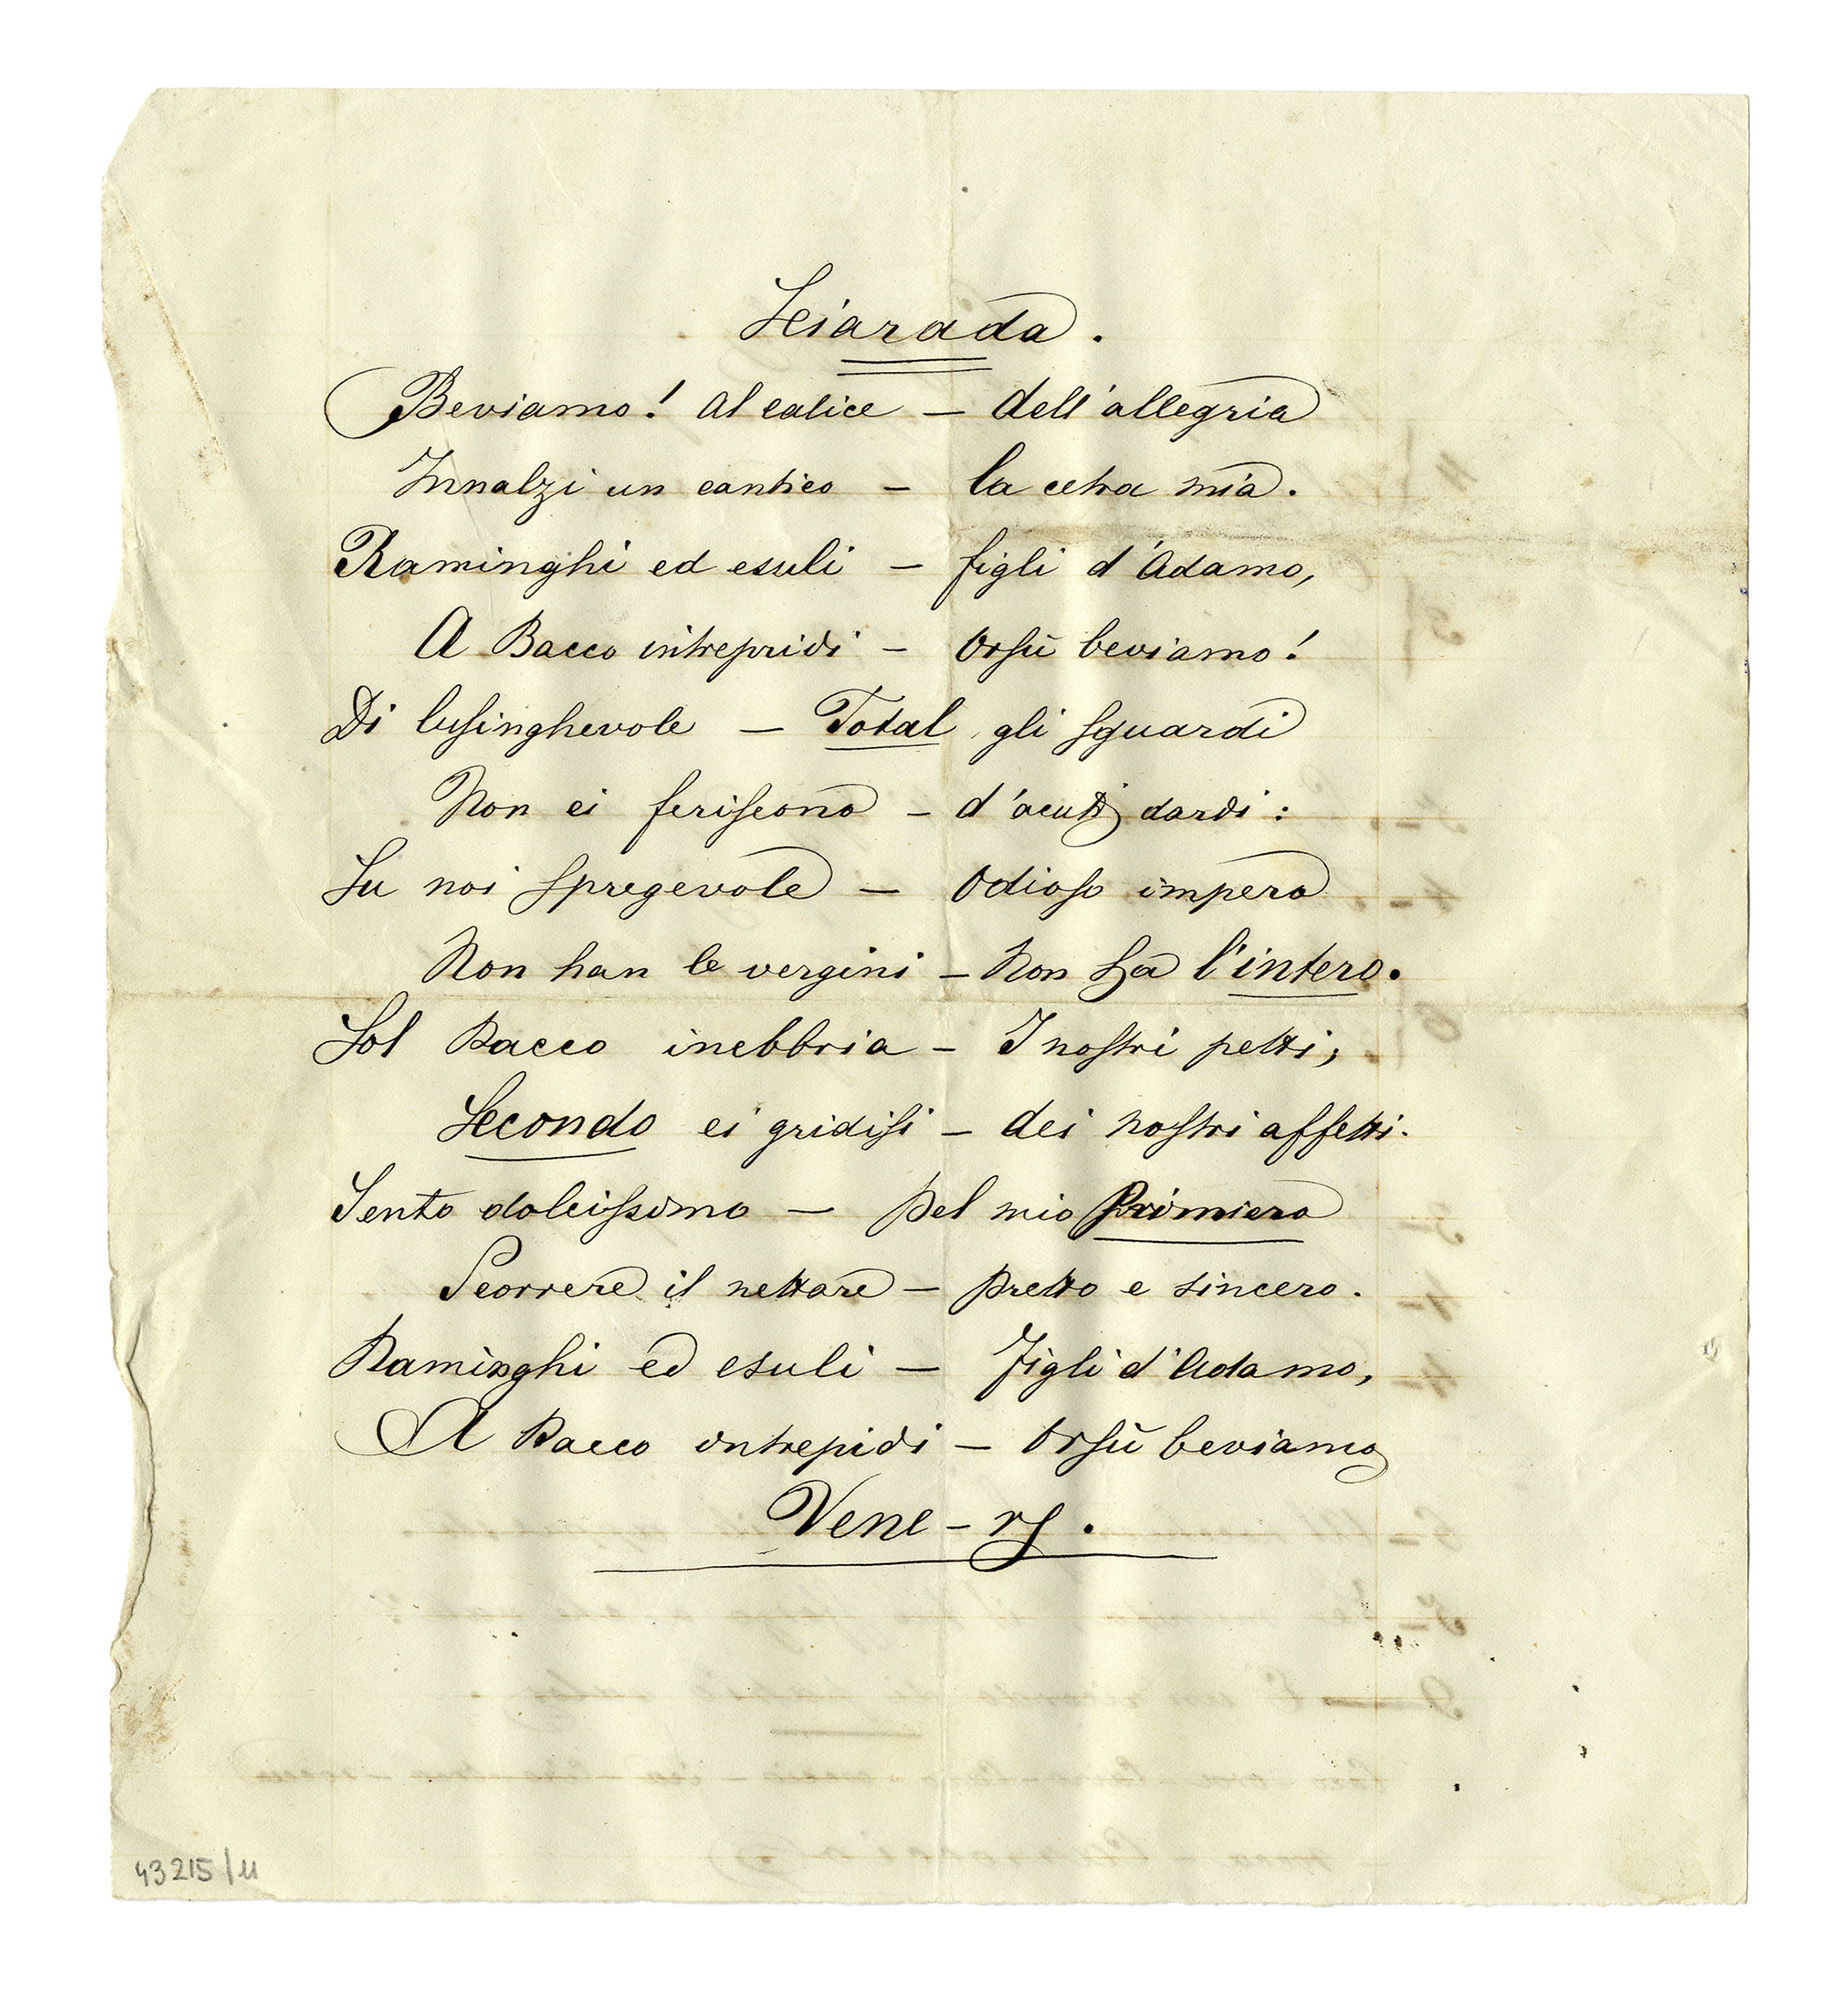 Sciarada.
Beviamo! Al calice – dell'allegria
Innalzi un cantico – la cetra mia.
Raminghi ed esuli – figli d'Adamo,
A Bacco intrepridi – Orsù beviamo!
Di lusinghevole – Total gli sguardi
Non ci feriscono – d'acuti dardi:
Su noi spregevole – Odioso impero
Non han le vergini – Non ha l'intero.
Sol Bacco inebbria – I nostri petti;
Secondo ei gridisi – dei nostri affetti.
Sento dolcissimo – pel mio Primiero
Scorrere il nettare – pretto e sincero.
Raminghi ed esuli – Figli d'Adamo,
A Bacco intrepidi – Orsù beviamo
Vene – re.
43215/11